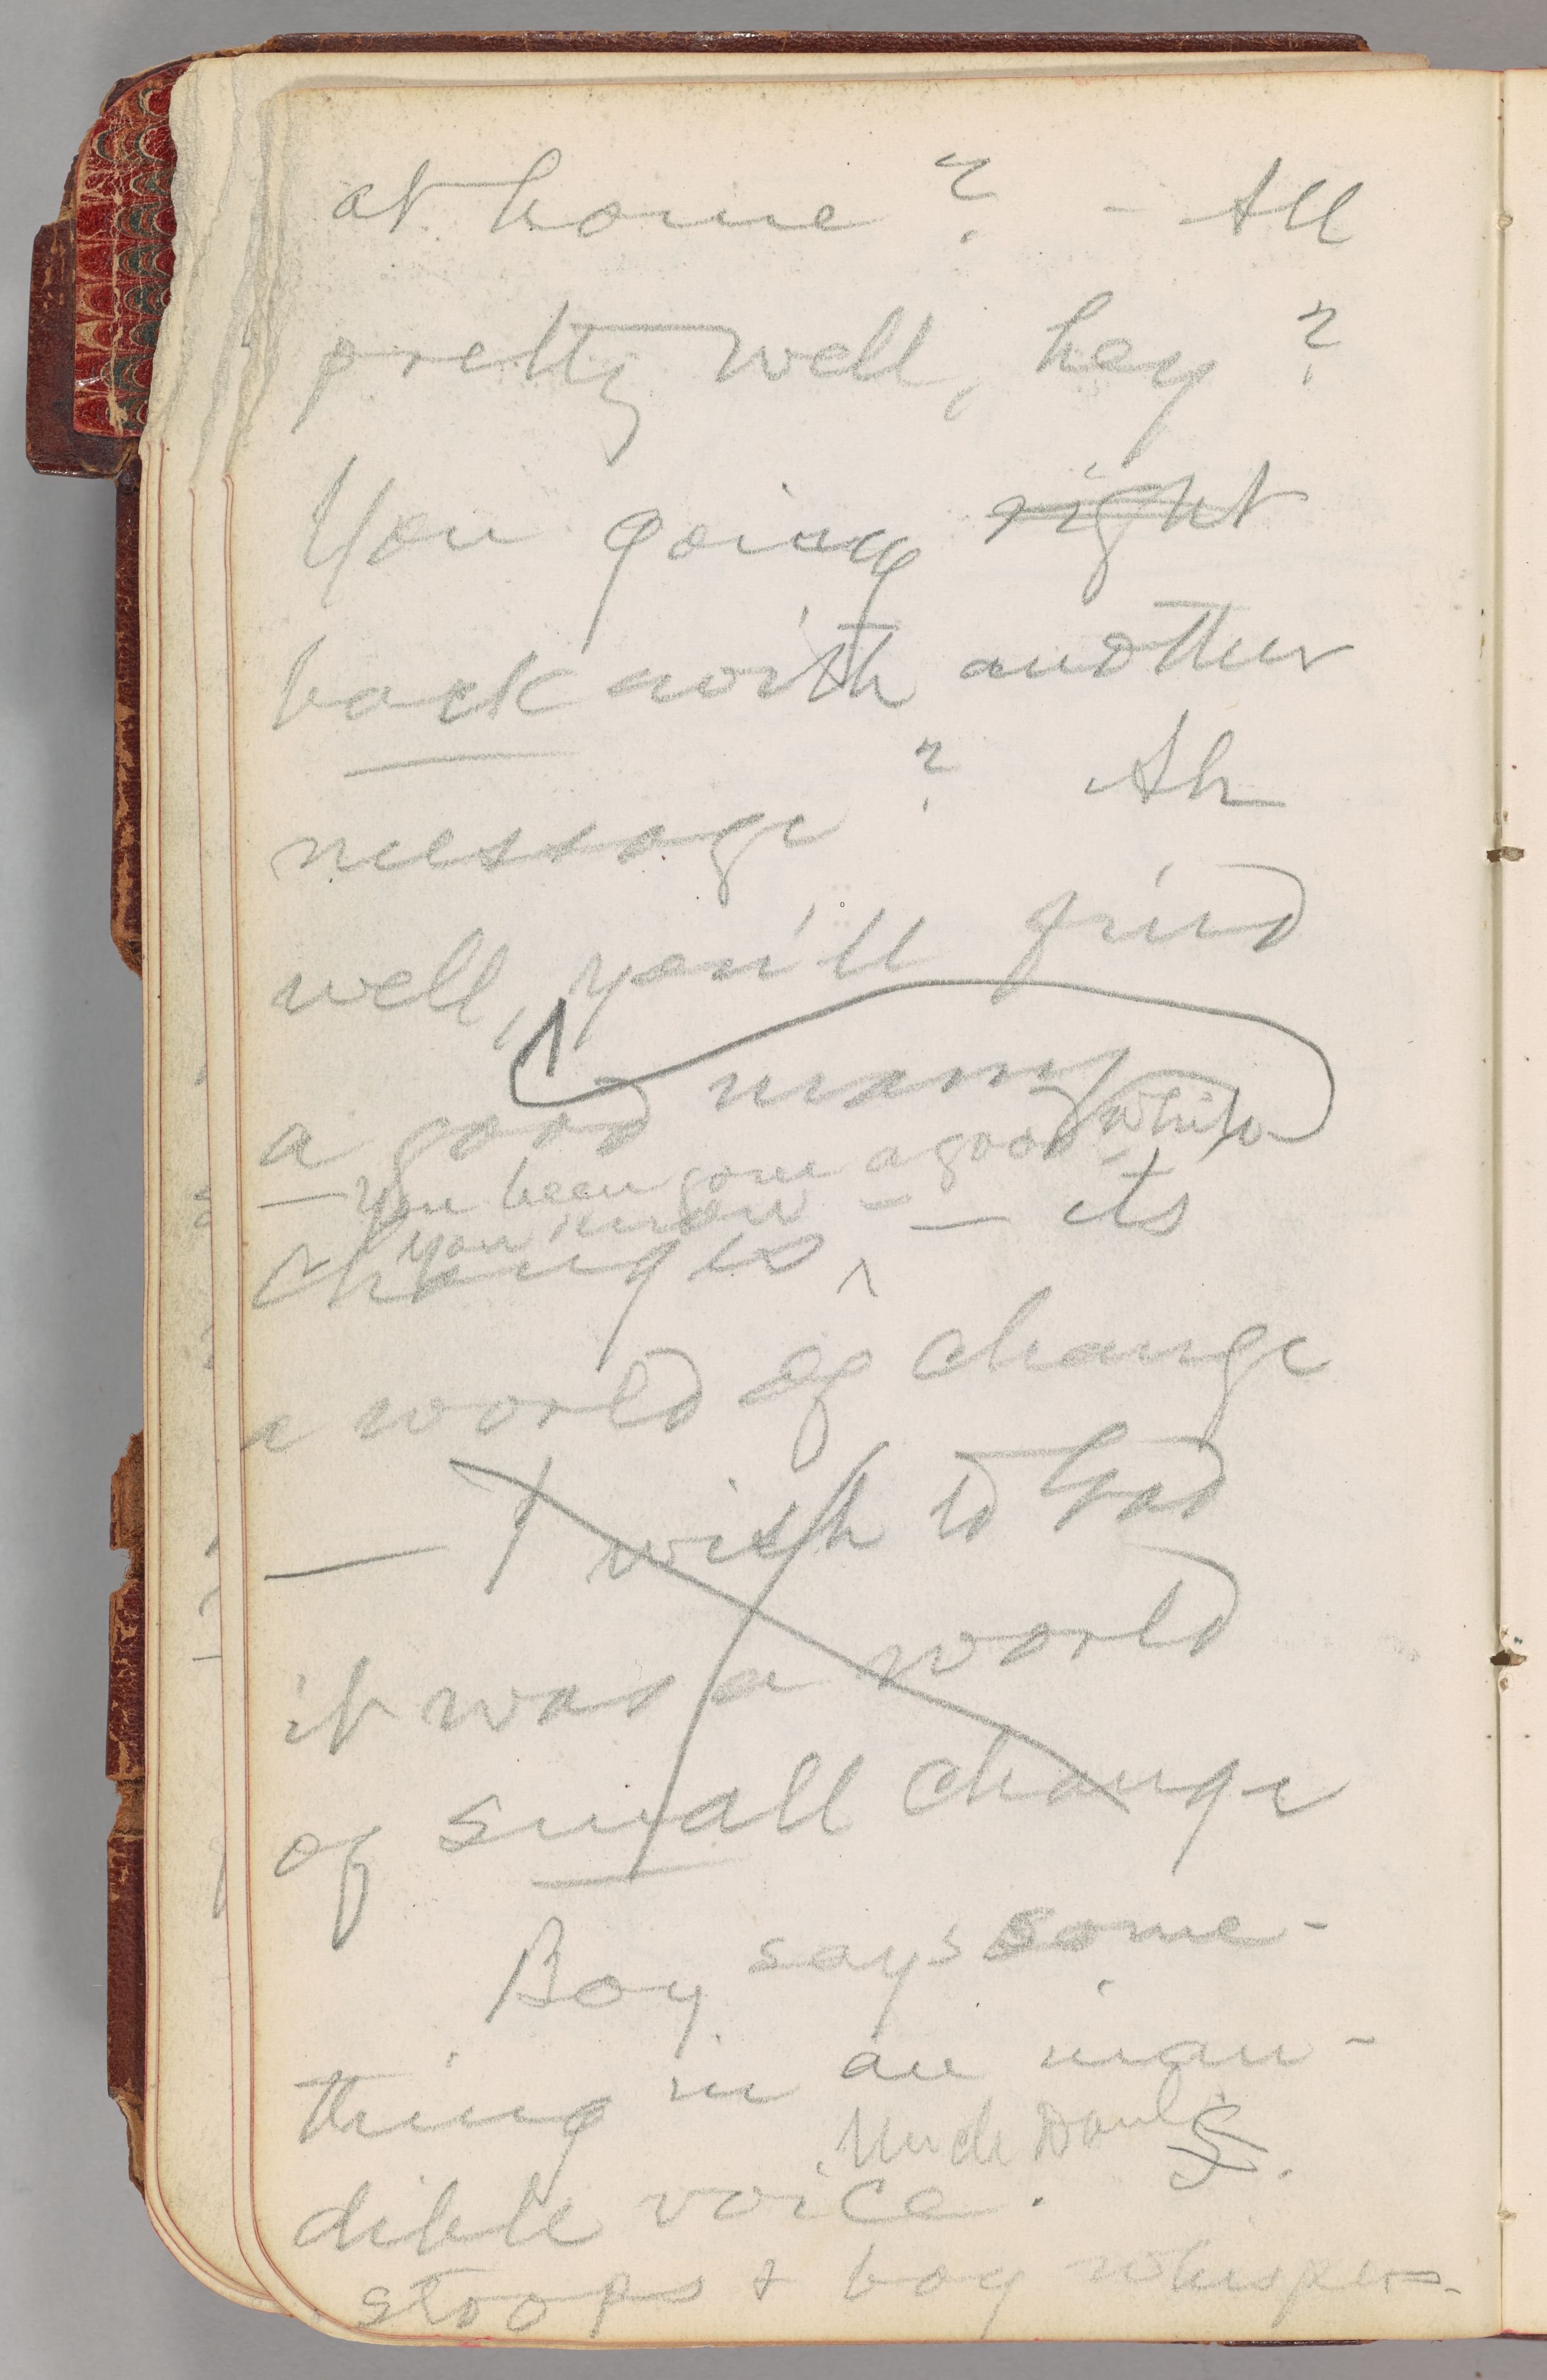 at home? - All
pretty well, hey?
You going right
back with another
message? Ah
well, you'll find
a good many
— you been gone a good while
you know — — its
changes ^
a world of change
— I wish to God
it was a world
of small change
Boy says some-
thing in an inau-
Uncle Daul S.
dible voice.
stoops & boy whispers.